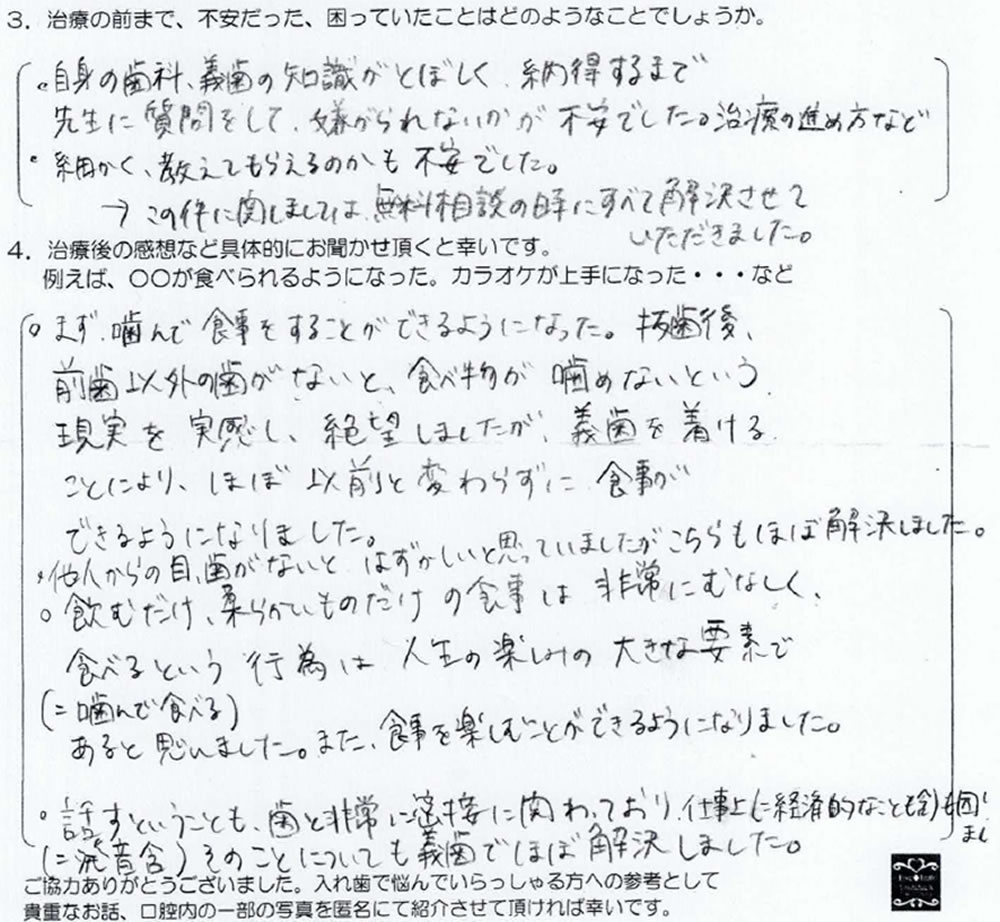 3. 治療の前まで、不安だった、困っていたことはどのようなことでしょうか。
・自身の歯科、義歯の知識がとぼしく、納得するまで
先生に質問をして、嫌がられないかが不安でした。治療の進め方など
・細かく、教えてもらえるのかも不安でした。
→ この件に関しましては、無料相談の時にすべて解決させて
いただきました。
4. 治療後の感想など具体的にお聞かせ頂くと幸いです。
例えば、○○が食べられるようになった。カラオケが上手になった・・・など
○まず、噛んで食事をすることができるようになった。抜歯後、
前歯以外の歯がないと、食べ物が噛めないという
現実を実感し、絶望しましたが、義歯を着ける
ことにより、ほぼ以前と変わらずに食事が
できるようになりました。
・他人からの目、歯がないと、はずかしいと思っていましたがこちらもほぼ解決しました。
○飲むだけ、柔らかいものだけの食事は非常にむなしく、
食べるという行為は人生の楽しみの大きな要素で
(=噛んで食べる)
あると思いました。また、食事を楽しむことができるようになりました。
○話すということも、歯と非常に密接に関わっており、仕事上(に経済的なことも含)も困り
まし
(=発音含)そのことについても義歯でほぼ解決しました。
ご協力ありがとうございました。入れ歯で悩んでいらっしゃる方への参考として
貴重なお話、口腔内の一部の写真を匿名にて紹介させて頂ければ幸いです。